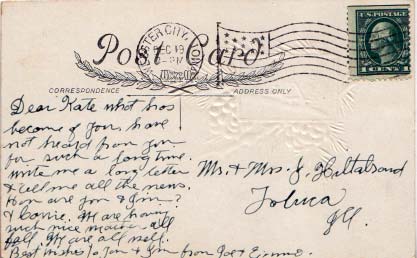 Post Card
DEC 19
CORRESPONDENCE
ADDRESS ONLY
U.S. POSTAGE
1 CENT 1
Dear Kate what has
become of you, have
not heard from you
for such a long time.
write me a long letter
& tell me all the news.
How are you & Jim?
We are having
such nice all
fall. We are all well.
Best wishes to you & Jim from
Mr. & Mrs. J.
Toluca
Ill.